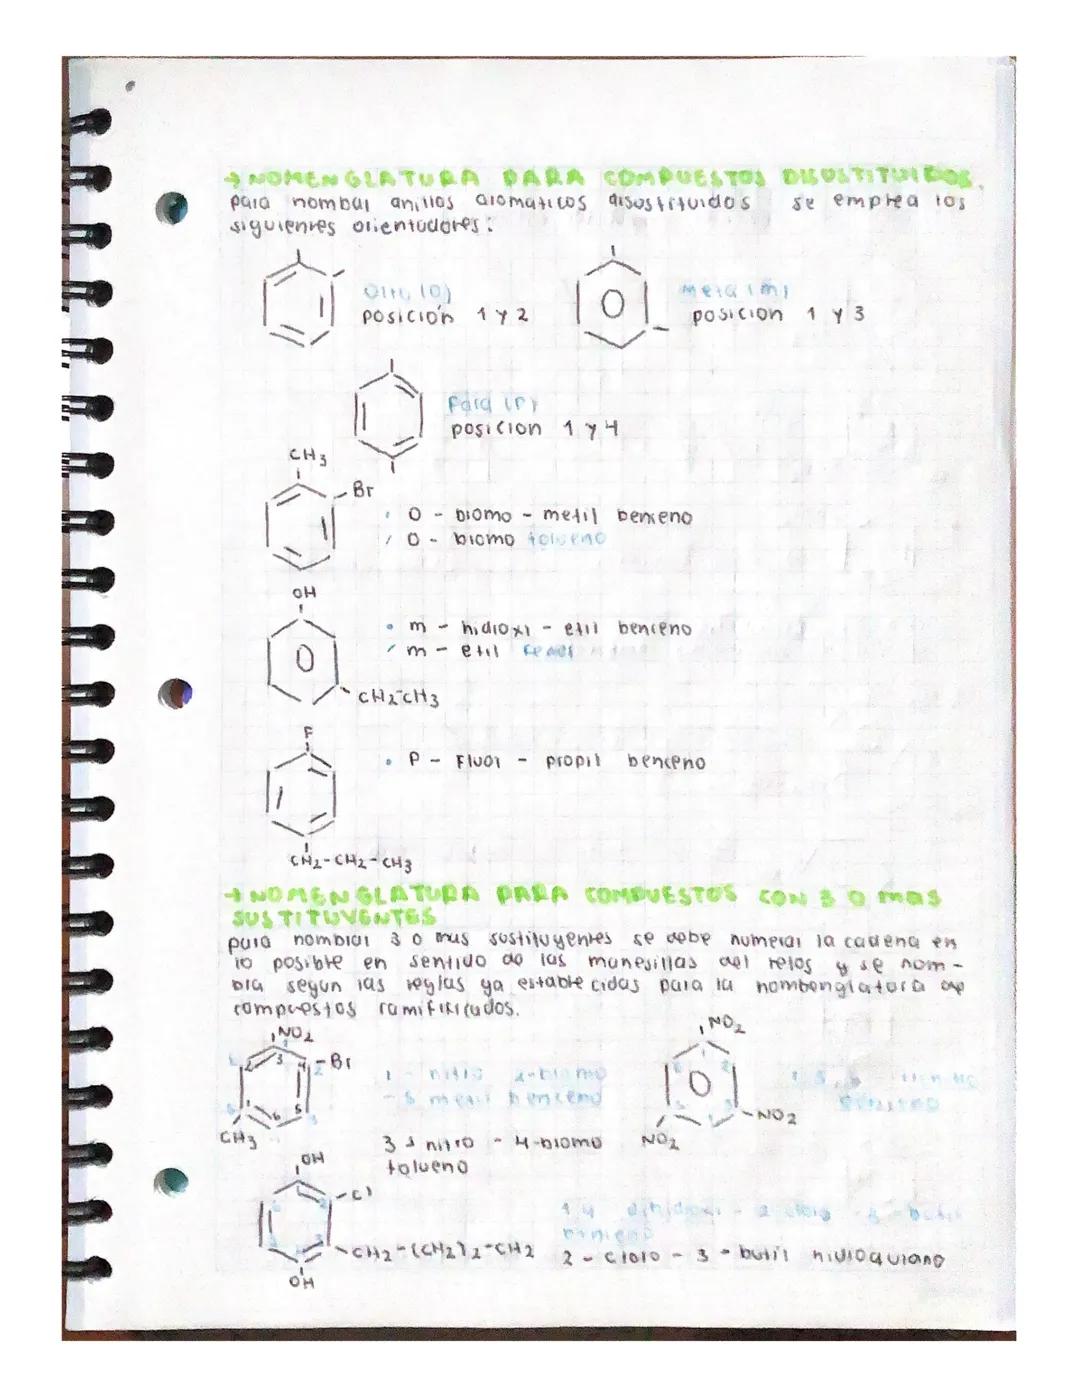 → NOMENGLATURA PARA COMPUESTOS DISUSTITUIDOS.
para nombrar anillos aromaticos disustituidos se emplea los
siguientes orientadores:
Orto (O)
posición 1 y 2
Meta (m)
posicion 1 y 3
Para (P)
posicion 1 y 4
CH3
Br
• O - bromo - metil benceno
✓ O - bromo tolueno
OH
• m - hidroxi - etil benceno
✓ m - etil fenol
CH2-CH3
F
• P - Fluor - propil benceno
CH2-CH2-CH3
→ NOMENGLATURA PARA COMPUESTOS CON 3 O mas
SUSTITUYENTES
para nombrar 3 o mas sustituyentes se debe numerar la cadena en
lo posible en sentido de las manesillas del reloj y se nom-
bra segun las reglas ya establecidas para la nombenglatura de
compuestos ramificados.
NO2
Br
1 - nitro 2-bromo
- 5 metil benceno
CH3
3 nitro - 4-bromo
tolueno
NO2
NO2
NO2
benceno
OH
Cl
CH2-(CH2)2-CH2
OH
1,4 dihidroxi - 2 cloro - 3 - butil
benceno
2 - cloro - 3 - butil hidroquiano